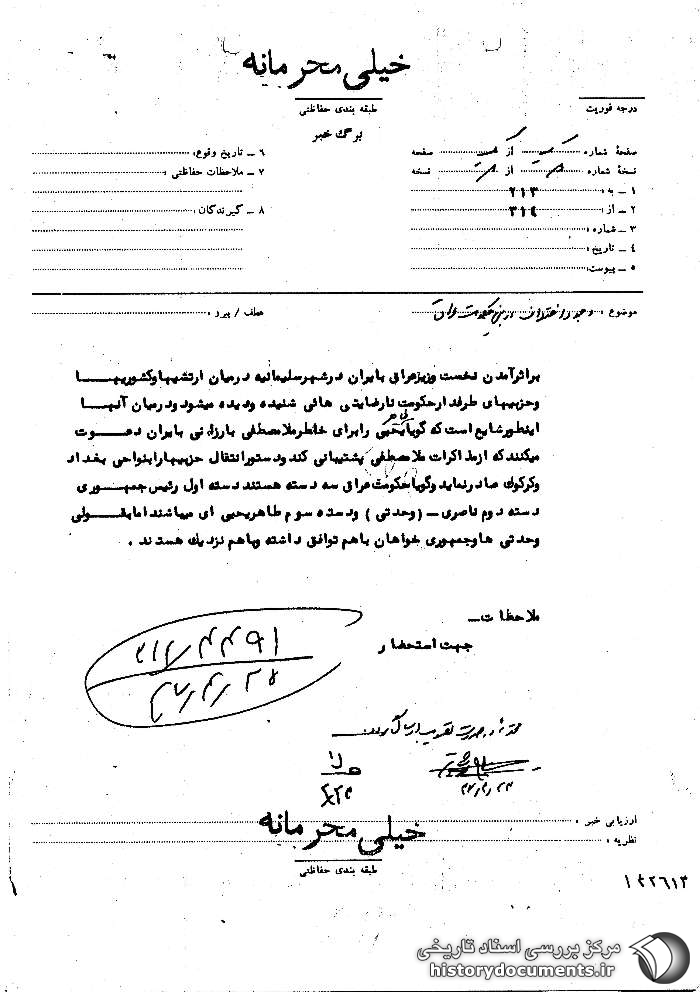 خیلی محرمانه
طبقه بندی حفاظتی
درجه فوریت
برگ خبر
صفحهٔ شماره از صفحه
نسخهٔ شماره از نسخه
۱ – به: ۲۱۳
۲ – از: ۳۱۴
۳ – شماره:
٤ – تاریخ:
۵ – پیوست:
۶ – تاریخ وقوع:
۷ – ملاحظات حفاظتی:
۸ – گیرندگان:
موضوع:
عطف / پیرو:
براثر آمدن نخست وزیر عراق بایران در شهر سلیمانیه در میان ارتشیها و کشوریهـــا
و حزبیهای طرفدار حکومت نارضایتی هائی شنیده و دیده میشود و در میان آنهـا
اینطور شایع است که گویا یحیی را برای خاطر ملامصطفی بارزانی بایران دعـــوت
میکنند که از مذاکرات ملامصطفی پشتیبانی کند و دستور انتقال حزبیها را بنواحی بغداد
و کرکوک صادر نماید و گویا حکومت عراق سه دسته هستند دسته اول رئیس جمهـــوری
دسته دوم ناصری ـ (وحدتی) و دسته سوم طاهر یحیی ای میباشند اما بقـــولی
وحدتی ها و جمهوری خواهان باهم توافق داشته و باهم نزدیک هستند .
ملاحظات ــ
جهت استحضار
۳۱۲/۴۴۹۱
۴۷/۴/۲۵
ارزیابی خبر:
نظریه:
خیلی محرمانه
طبقه بندی حفاظتی
۱۴۲۶۱۳
مرکز بررسی اسناد تاریخی
historydocuments.ir